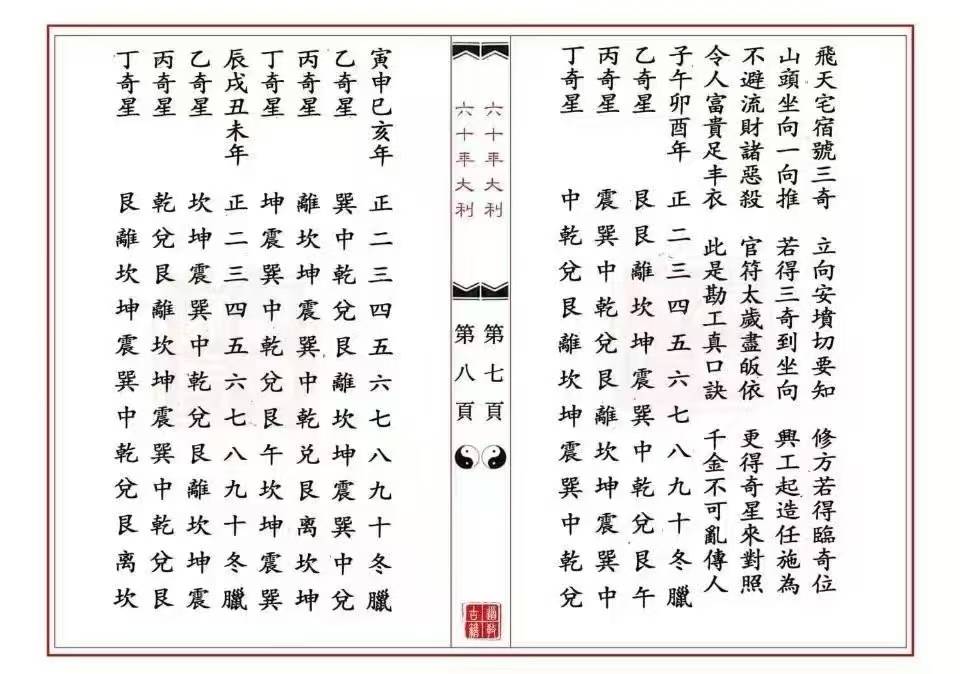 飛天宅宿號三奇 立向安墳切要知 修方若得臨奇位
山頭坐向一向推 若得三奇到坐向 興工起造任施為
不避流財諸惡殺 官符太歲盡皈依 更得奇星來對照
令人富貴足丰衣 此是勘工真口訣 千金不可亂傳人
子午卯酉年 正二三四五六七八九十冬臘
乙奇星 艮艮離坎坤震巽中乾兌艮午
丙奇星 震巽中乾兌艮離坎坤震巽中
丁奇星 中乾兌艮離坎坤震巽中乾兌
六十年大利 第七頁
六十年大利 第八頁
寅申巳亥年 正二三四五六七八九十冬臘
乙奇星 巽中乾兌艮離坎坤震巽中兌
丙奇星 離坎坤震巽中乾兑艮离坎坤
丁奇星 坤震巽中乾兌艮午坎坤震巽
辰戌丑未年 正二三四五六七八九十冬臘
乙奇星 坎坤震巽中乾兌艮離坎坤震
丙奇星 乾兌艮離坎坤震巽中乾兌艮
丁奇星 艮離坎坤震巽中乾兌艮离坎